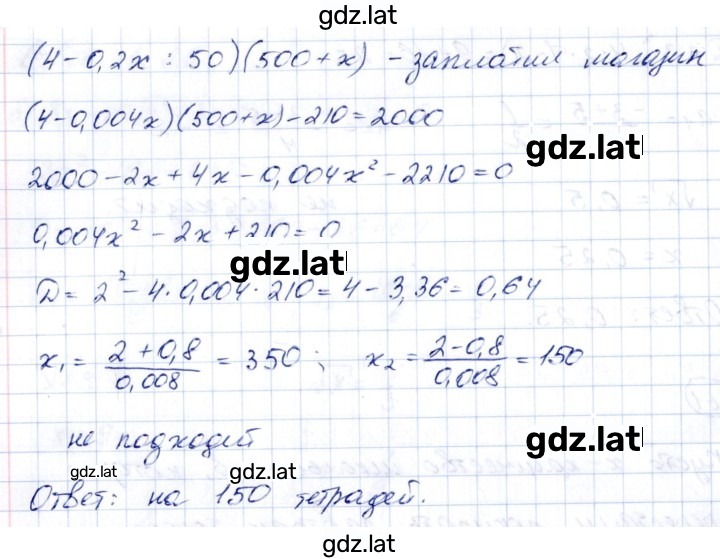 gdz.lat
(4-0,2x : 50)(500+x) - заплатил магазин
(4-0,004x)(500+x)-210=2000
gdz.lat
2000-2x+4x-0,004x²-2210=0
0,004x²-2x+210=0
gdz.lat
D=2²-4·0,004·210=4-3,36=0,64
x₁= (2+0,8)/0,008 = 350; x₂= (2-0,8)/0,008 =150
не подходит gdz.lat
gdz.lat gdz.lat
Ответ: на 150 тетрадей.
gdz.lat